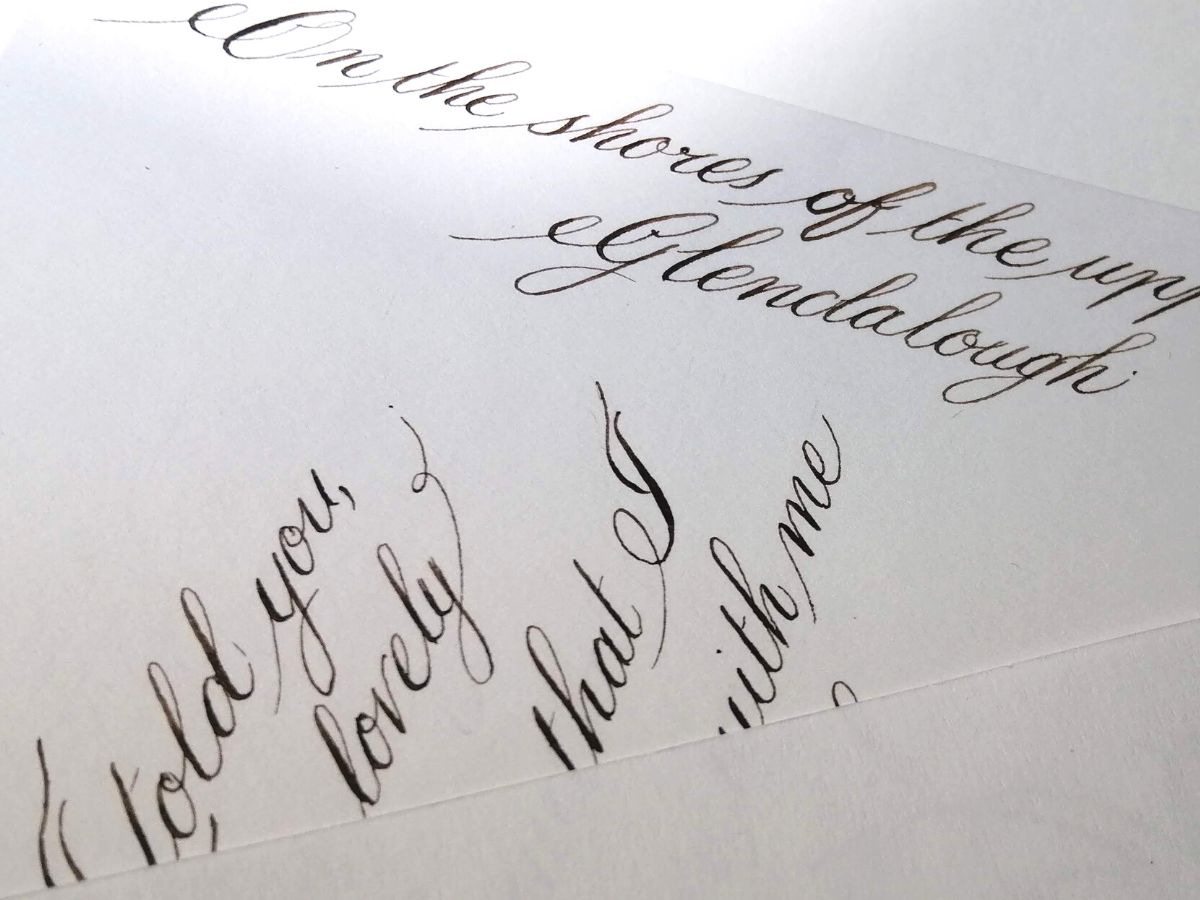 On the shores of the upp
Glendalough
told you,
lovely
that I
with me